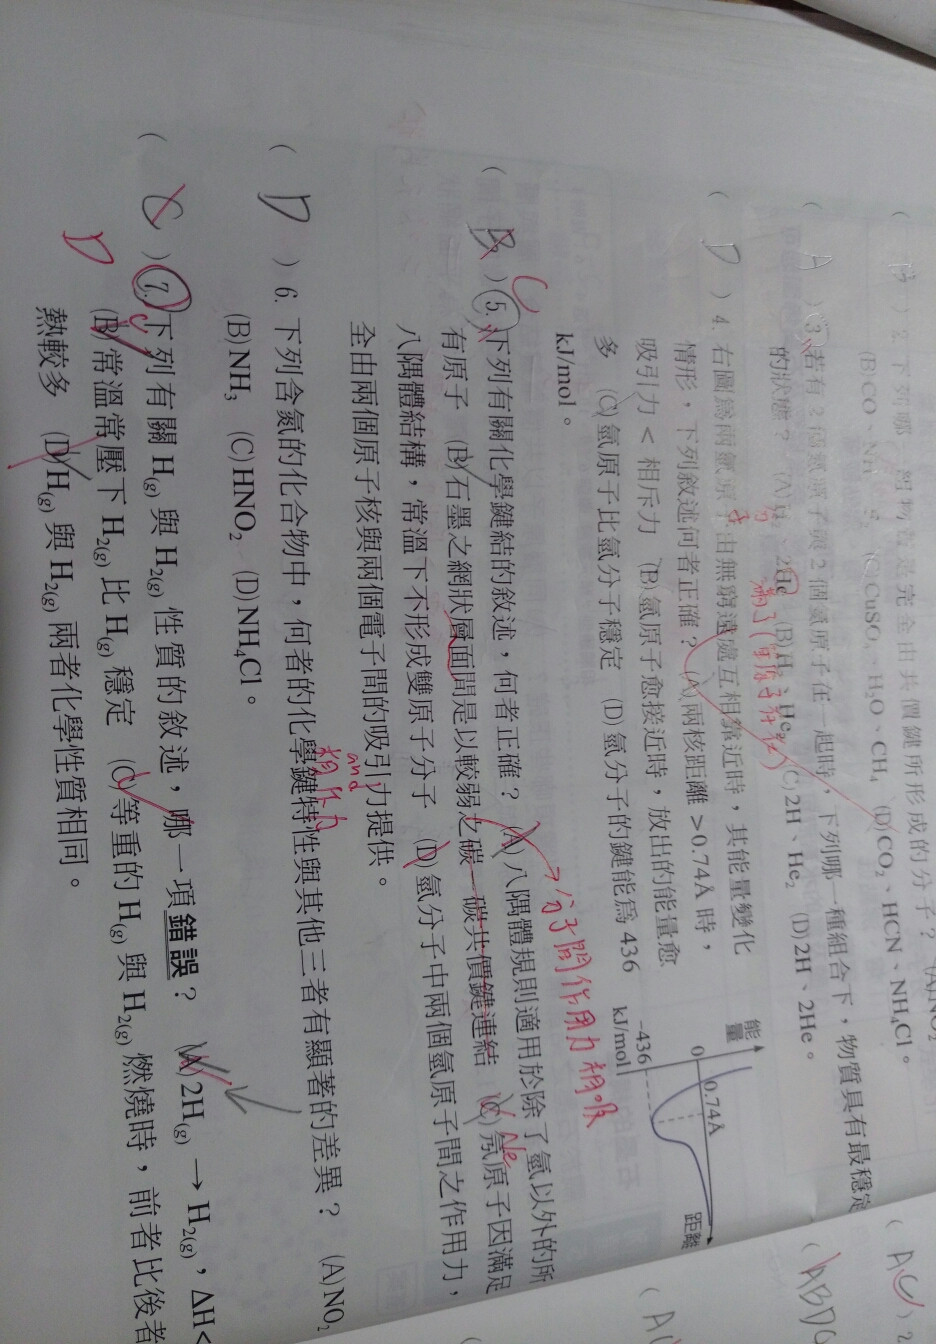 完全由共價鍵所形成的分子？
(B)CO、 (C)CuSO₄、H₂O、CH₄ (D)CO₂、HCN、NH₄Cl。
( A ) 3. 若有2個氫原子與2個氦原子在一起時，下列哪一種組合下，物質具有最穩定
的狀態？ (A)H₂、2He (B)H₂、He₂ (C)2H、He₂ (D)2H、2He。
( D ) 4. 右圖為兩氫原子由無窮遠處互相靠近時，其能量變化
情形，下列敘述何者正確？ (A)兩核距離＞0.74Å 時，
吸引力＜相斥力 (B)氫原子愈接近時，放出的能量愈
多 (C)氫原子比氫分子穩定 (D)氫分子的鍵能為 436
kJ/mol。
能量
0
0.74Å
距離
-436
kJ/mol
分子間作用力相吸
( B ) C 5. 下列有關化學鍵結的敘述，何者正確？ (A)八隅體規則適用於除了氫以外的所
有原子 (B)石墨之網狀層面間是以較弱之碳－碳共價鍵連結 (C)氖原子因滿足
Ne
八隅體結構，常溫下不形成雙原子分子 (D)氫分子中兩個氫原子間之作用力，
全由兩個原子核與兩個電子間的吸引力提供。
and
相斥力
( D ) 6. 下列含氮的化合物中，何者的化學鍵特性與其他三者有顯著的差異？ (A)NO₂
(B)NH₃ (C)HNO₂ (D)NH₄Cl。
( C ) D 7. 下列有關 H(g) 與 H₂(g) 性質的敘述，哪一項錯誤？ (A) 2H(g) → H₂(g)，ΔH<
(B)常溫常壓下 H₂(g) 比 H(g) 穩定 (C)等重的 H(g) 與 H₂(g) 燃燒時，前者比後者
熱較多 (D)H(g) 與 H₂(g) 兩者化學性質相同。